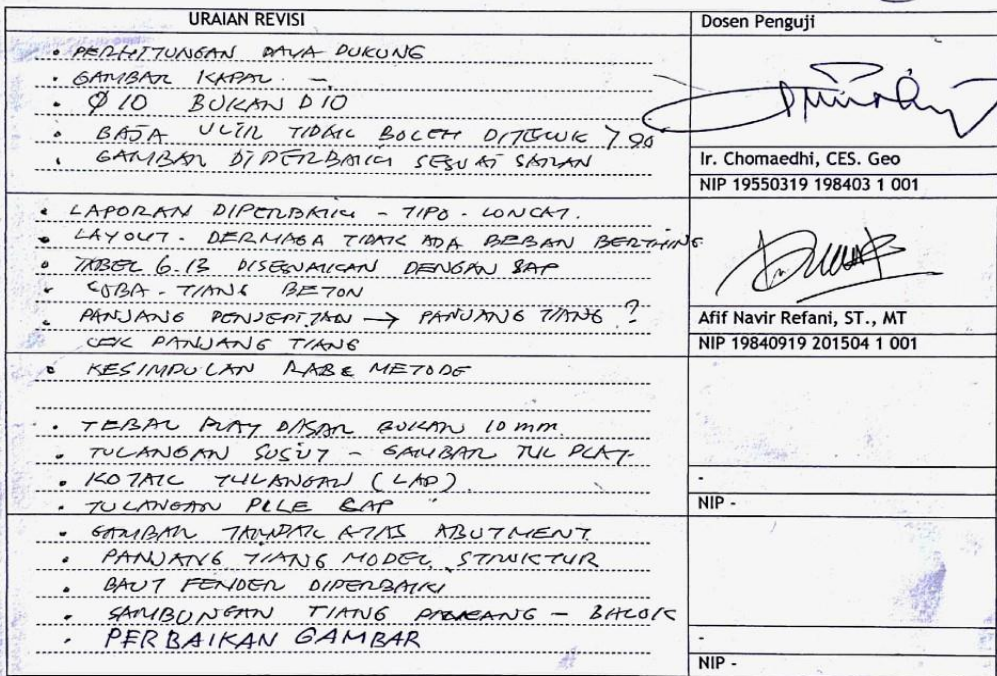 URAIAN REVISI
Dosen Penguji
• PERHITUNGAN DAYA DUKUNG
• GAMBAR KAPAL. –
• Ø 10 BUKAN D10
• BAJA ULIR TIDAK BOLEH DITEKUK > 90
• GAMBAR DIPERBAIKI SESUAI SARAN
Ir. Chomaedhi, CES. Geo
NIP 19550319 198403 1 001
• LAPORAN DIPERBAIKI – TIPO – LONCAT.
• LAYOUT – DERMAGA TIDAK ADA BEBAN BERTHING
• TABEL 6.13 DISESUAIKAN DENGAN SAP
• COBA – TIANG BETON
• PANJANG PENJEPITAN → PANJANG TIANG ?
CEK PANJANG TIANG
Afif Navir Refani, ST., MT
NIP 19840919 201504 1 001
• KESIMPULAN RAB & METODE
• TEBAL PLAT DASAR BUKAN 10 mm.
• TULANGAN SUSUT – GAMBAR TUL PLAT
• KOTAK TULANGAN (LAP)
• TULANGAN PILE CAP "
-
NIP -
• GAMBAR TAMPAK ATAS ABUTMENT
• PANJANG TIANG MODEL STRUKTUR
• BAUT FENDER DIPERBAIKI
• SAMBUNGAN TIANG PANCANG – BALOK
• PERBAIKAN GAMBAR
-
NIP -